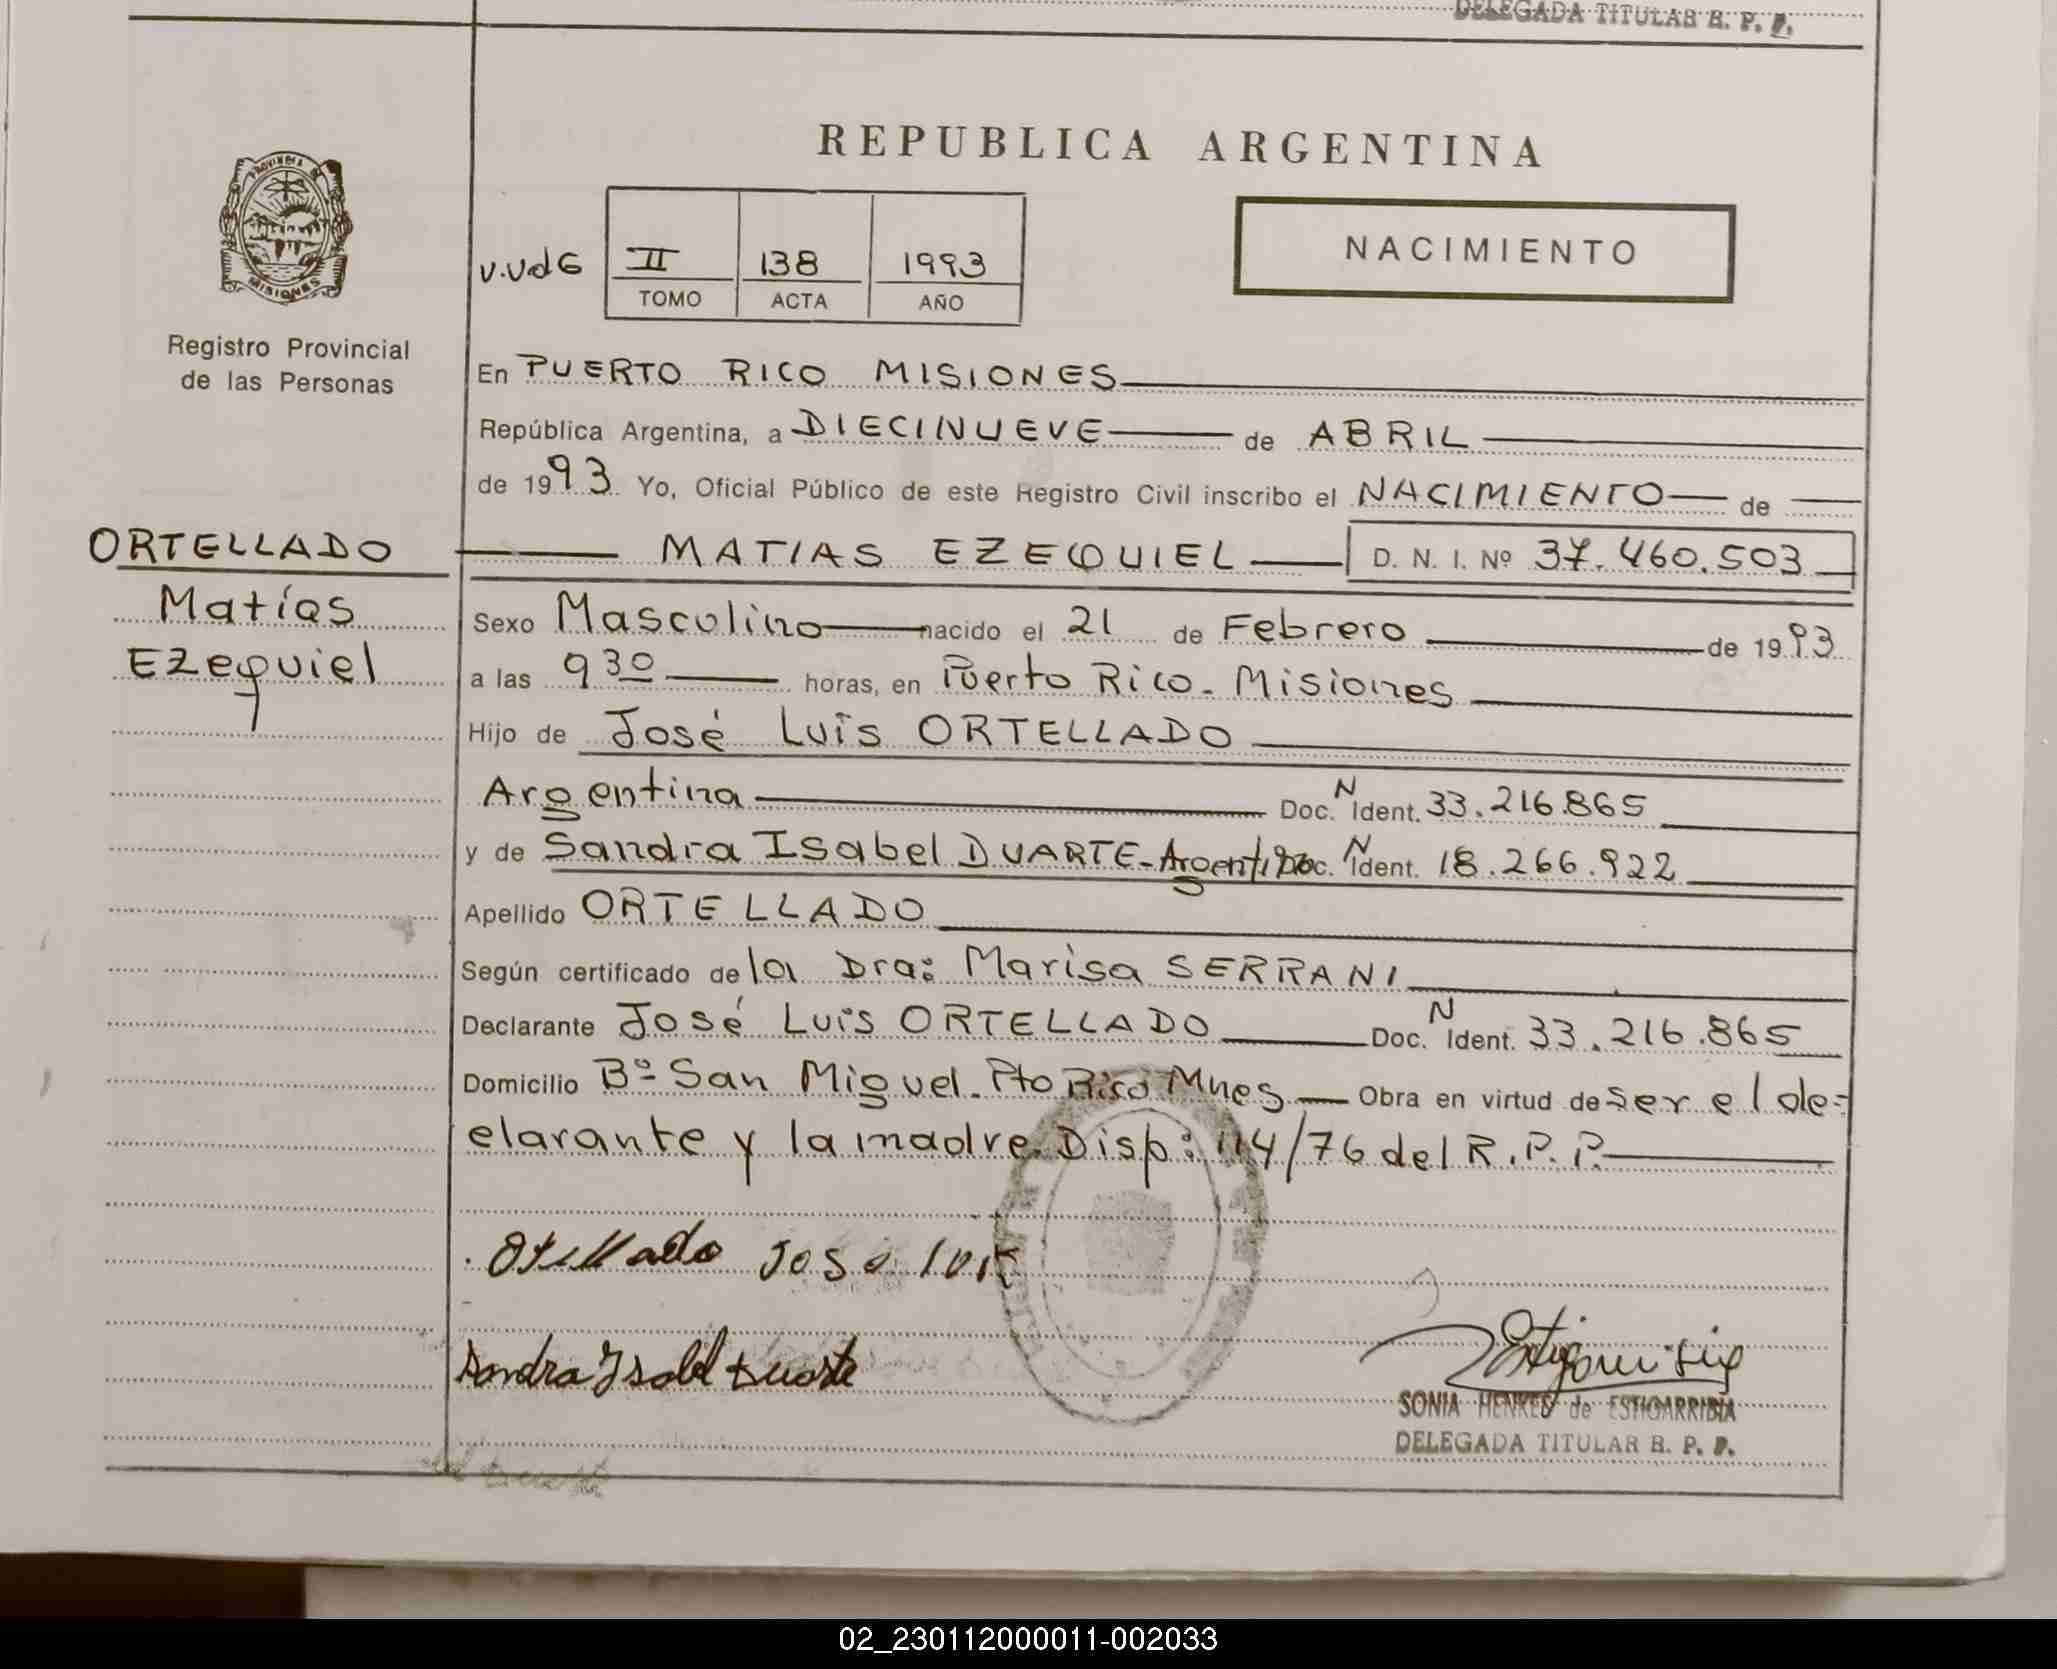 DELEGADA TITULAR R. P. P.
REPUBLICA ARGENTINA
PROVINCIA DE
MISIONES
Registro Provincial
de las Personas
v.vdG II 138 1993
TOMO ACTA AÑO
NACIMIENTO
En PUERTO RICO MISIONES
República Argentina, a DIECINUEVE de ABRIL
de 1993 Yo, Oficial Público de este Registro Civil inscribo el NACIMIENTO de
ORTELLADO
Matías
Ezequiel
MATIAS EZEQUIEL D. N. I. Nº 37.460.503
Sexo Masculino nacido el 21 de Febrero de 1993
a las 9 30 horas, en Puerto Rico. Misiones
Hijo de José Luis ORTELLADO
Argentina Doc. N Ident. 33.216.865
y de Sandra Isabel DUARTE-Argentina Doc. N Ident. 18.266.922
Apellido ORTELLADO
Según certificado de la Dra: Marisa SERRANI
Declarante José Luis ORTELLADO Doc. N Ident. 33.216.865
Domicilio Bº San Miguel. Pto Rico Mnes Obra en virtud de ser el de=
clarante y la madre. Disp: 114/76 del R.P.P.
Ortellado José luis
Sandra Isabel Duarte
SONIA HENKES de ESTIGARRIBIA
DELEGADA TITULAR R. P. P.
02_230112000011-002033